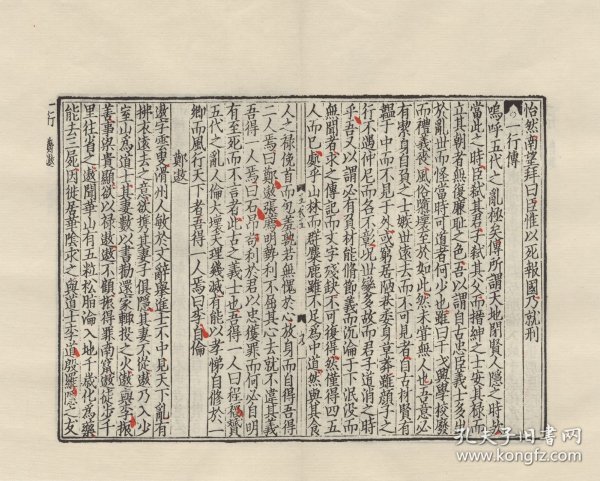 怡然南望拜曰臣惟以死報國乃就刑
一行傳
嗚呼五代之亂極矣傳所謂天地閉賢人隱之時歟
當此之時臣弒其君子弒其父而搢紳之士安其祿而
立其朝者無復廉恥之色吾以謂自古忠臣義士多出
於亂世而怪當時可道者何少也雖曰干戈興學校廢
而禮義衰風俗隳壞至於如此然未嘗無人也吾意必
有潔身自負之士嫉世遠去而不可見者自古材賢有
韞于中而不見于外或窮居陋巷委身草莽雖顏子之
行不遇仲尼而名不彰況世變多故而君子道消之時
乎吾又以謂必有負材能脩節義而沉淪于下泯沒而
無聞者求之傳記而文字殘缺不可復得然僅得四五
人而已處乎山林而群麋鹿雖不足為中道然與其食
人之祿俛首而包羞孰若無愧於心放身而自得吾得
二人焉曰鄭遨張薦明勢利不屈其心去就不違其義
吾得一人焉曰石昂苟利於君以忠獲罪而何必自明
有至死而不言者此古之義士也吾得一人曰程福贇
五代之亂人倫大壞天理幾滅有能以孝悌自修於一
鄉而風行天下者吾得一人焉曰李自倫
鄭遨
遨字雲叟滑州人敏於文辭舉進士不中見天下亂有
拂衣遠去之意欲携其妻子俱隱其妻不從遨乃入少
室山為道士其妻數以書勸還家輒投之火遨與李振
善事梁貴顯欲以祿遨不顧振得罪南竄遨徒步千
里往省之遨聞華山有五粒松脂淪入地千歲化為藥
能去三尸因徙居華陰求之與道士李道殷羅隱之友
一行
鄭遨
孔夫子旧书网
www.kongfz.com